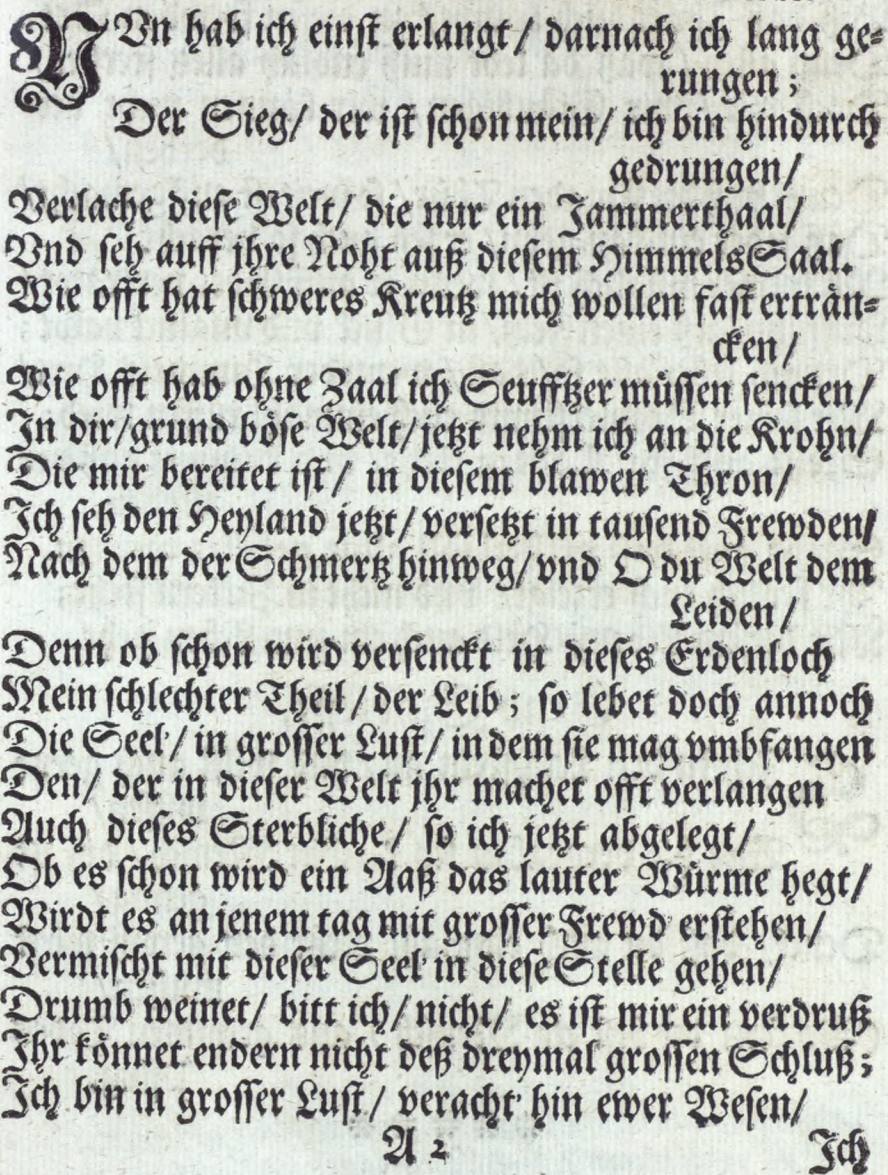 NVn hab ich einst erlangt/ darnach ich lang ge-
rungen;
Der Sieg/ der ist schon mein/ ich bin hindurch
gedrungen/
Verlache diese Welt/ die nur ein Jammerthaal/
Vnd seh auff jhre Noht auß diesem HimmelsSaal.
Wie offt hat schweres Kreutz mich wollen fast erträn-
cken/
Wie offt hab ohne Zaal ich Seufftzer müssen sencken/
In dir/grund böse Welt/jetzt nehm ich an die Krohn/
Die mir bereitet ist/ in diesem blawen Thron/
Ich seh den Heyland jetzt/ versetzt in tausend Frewden/
Nach dem der Schmertz hinweg/ vnd O du Welt dem
Leiden/
Denn ob schon wird versenckt in dieses Erdenloch
Mein schlechter Theil/der Leib; so lebet doch annoch
Die Seel'/ in grosser Lust/ in dem sie mag vmbfangen
Den/ der in dieser Welt jhr machet offt verlangen
Auch dieses Sterbliche/ so ich jetzt abgelegt/
Ob es schon wird ein Aaß das lauter Würme hegt/
Wirdt es an jenem tag mit grosser Frewd' erstehen/
Vermischt mit dieser Seel' in diese Stelle gehen/
Drumb weinet/ bitt ich/ nicht/ es ist mir ein verdruß
Ihr könnet endern nicht deß dreymal grossen Schluß;
Ich bin in grosser Lust/ veracht' hin ewer Wesen/
A 2 Ich